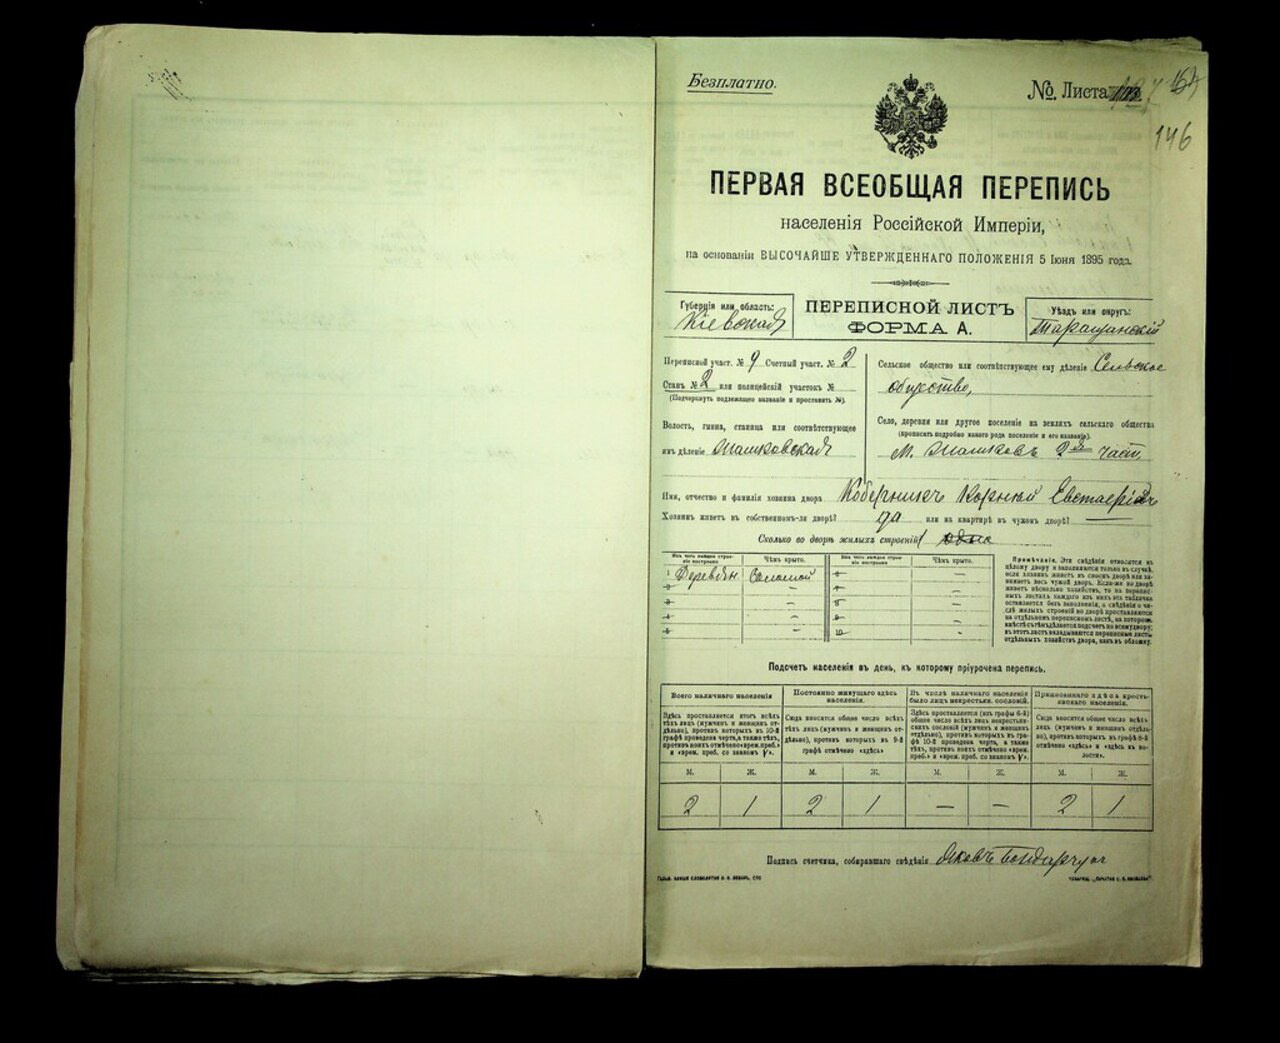 Безплатно.
№ Листа
146
ПЕРВАЯ ВСЕОБЩАЯ ПЕРЕПИСЬ
населенія Россійской Имперіи,
на основаніи ВЫСОЧАЙШЕ УТВЕРЖДЕННАГО ПОЛОЖЕНІЯ 5 Іюня 1895 года.
Губернія или область:
Кіевская
ПЕРЕПИСНОЙ ЛИСТЪ
ФОРМА А.
Уѣздъ или округъ:
Таращанскій
Переписной участ. № 9 Счетный участ. № 2
Станъ № 2 или полицейскій участокъ №
(Подчеркнуть подлежащее названіе и проставить №).
Волость, гмина, станица или соотвѣтствующее
имъ дѣленіе
Сельское общество или соотвѣтствующее ему дѣленіе Сельское
общество,
Село, деревня или другое поселеніе на земляхъ сельскаго общества
(прописать подробно какого рода поселеніе и его названіе).
М. 2я част.
Имя, отчество и фамилія хозяина двора Коберникъ Корнѣй
Хозяинъ живетъ въ собственномъ-ли дворѣ? да или на квартирѣ въ чужомъ дворѣ? —
Сколько во дворѣ жилыхъ строеній 1 одно
Изъ чего каждое строеніе построено
Чѣмъ крыто.
Изъ чего каждое строеніе построено
Чѣмъ крыто.
1 Деревян. Соломой 6 —
2 — 7 —
3 — 8 —
4 — 9 —
5 — 10 —
Примѣчаніе. Эти свѣдѣнія относятся къ
цѣлому двору и заполняются только въ случаѣ,
если хозяинъ живетъ въ своемъ дворѣ или занимаетъ
весь чужой дворъ. Если-же во дворѣ
живетъ нѣсколько хозяйствъ, то на переписныхъ
листахъ каждаго изъ нихъ эта табличка
оставляется безъ заполненія, а свѣдѣнія о числѣ
жилыхъ строеній во дворѣ проставляются
на отдѣльномъ переписномъ листѣ, на которомъ
вмѣстѣ съ тѣмъ дѣлается подсчетъ по всему двору;
въ этотъ листъ вкладываются переписные листы
отдѣльныхъ хозяйствъ двора, какъ въ обложку.
Подсчетъ населенія въ день, къ которому пріурочена перепись.
Всего наличнаго населенія
Постоянно живущаго здѣсь
населенія.
Въ числѣ наличнаго населенія
было лицъ некрестьян. сословій.
Приписаннаго здѣсь крестьянскаго
населенія.
Здѣсь проставляется итогъ всѣхъ
тѣхъ лицъ (мужчинъ и женщинъ отдѣльно),
противъ которыхъ въ 10-й
графѣ проведена черта, а также тѣхъ,
противъ коихъ отмѣчено «врем. преб.»
и «врем. преб. со знакомъ V».
Сюда вносится общее число всѣхъ
тѣхъ лицъ (мужчинъ и женщинъ отдѣльно),
противъ которыхъ въ 9-й
графѣ отмѣчено «здѣсь»
Здѣсь проставляется (изъ графы 6-й)
общее число всѣхъ лицъ некрестьянскихъ
сословій (мужчинъ и женщинъ
отдѣльно), противъ которыхъ въ графѣ
10-й проведена черта, а также
тѣхъ, противъ коихъ отмѣчено «врем.
преб.» и «врем. преб. со знакомъ V».
Сюда вносится общее число всѣхъ
лицъ (мужчинъ и женщинъ отдѣльно),
противъ которыхъ въ графѣ 8-й
отмѣчено «здѣсь» и «здѣсь въ волости».
М. Ж. М. Ж. М. Ж. М. Ж.
2 1 2 1 — — 2 1
Подпись счетчика, собиравшаго свѣдѣнія Яковъ Бондарчукъ